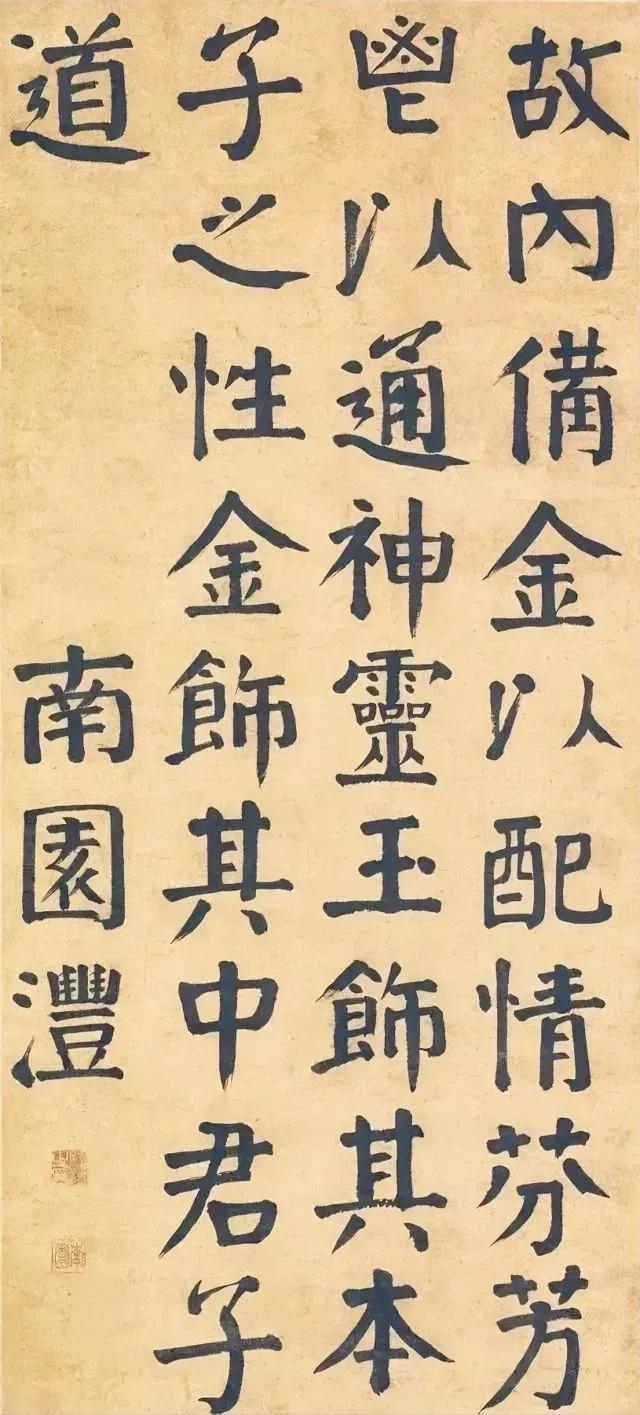 故內備金以配情芬芳
鬯以通神靈玉飾其本
子之性金飾其中君子
道
南園灃
南園